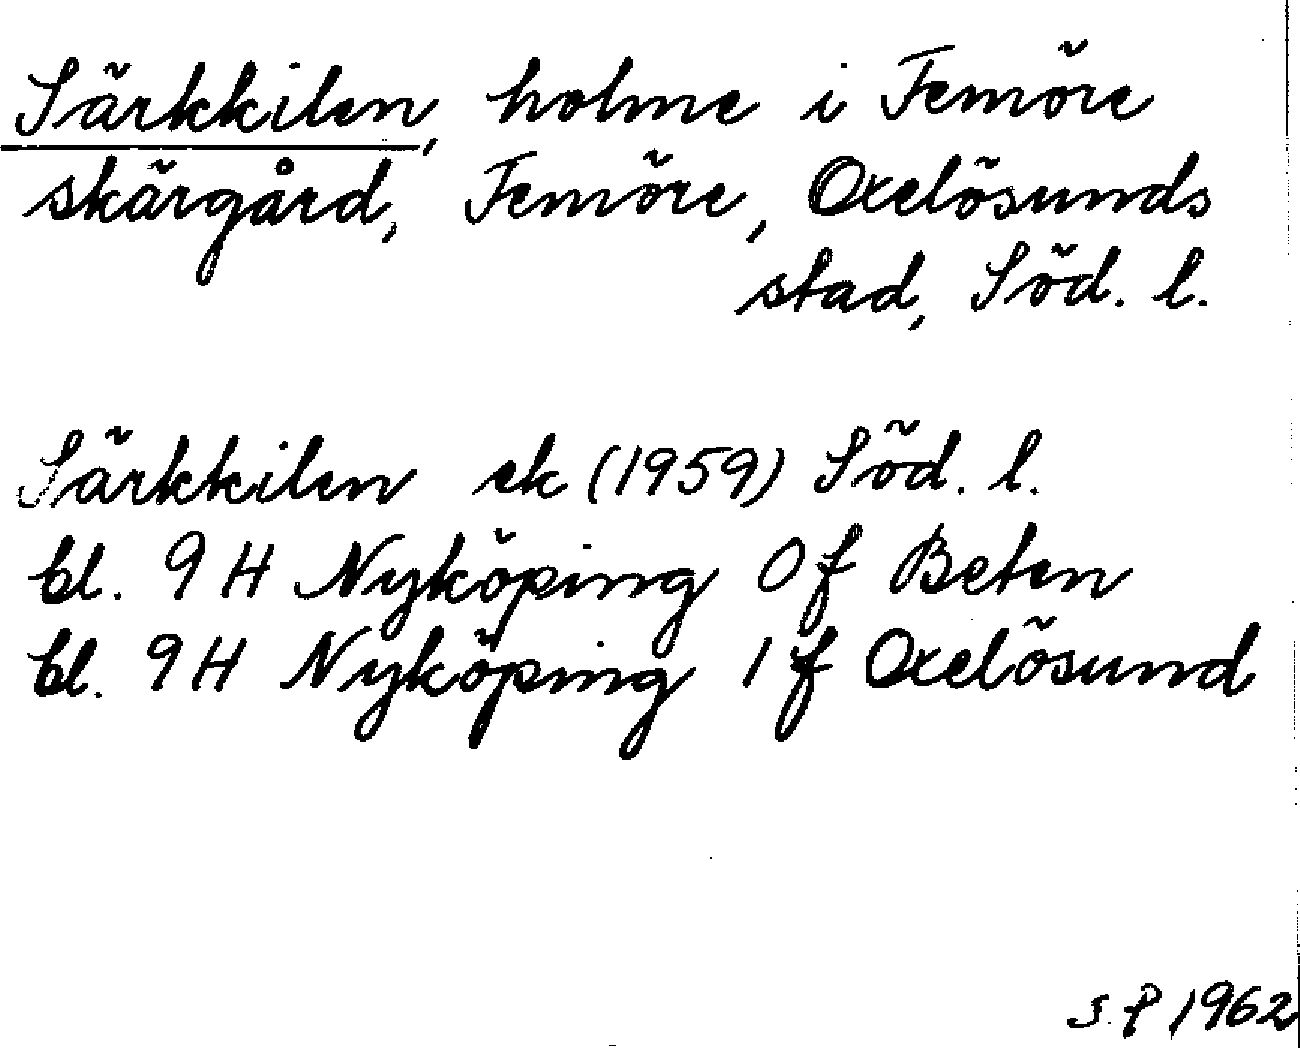 Särkkilen, holme i Femöre
skärgård, Femöre, Oxelösunds
stad, Söd. l.
Särkkilen ek (1959) Söd. l.
bl. 9 H Nyköping 0 f Beten
bl. 9 H Nyköping 1 f Oxelösund
S. P 1962